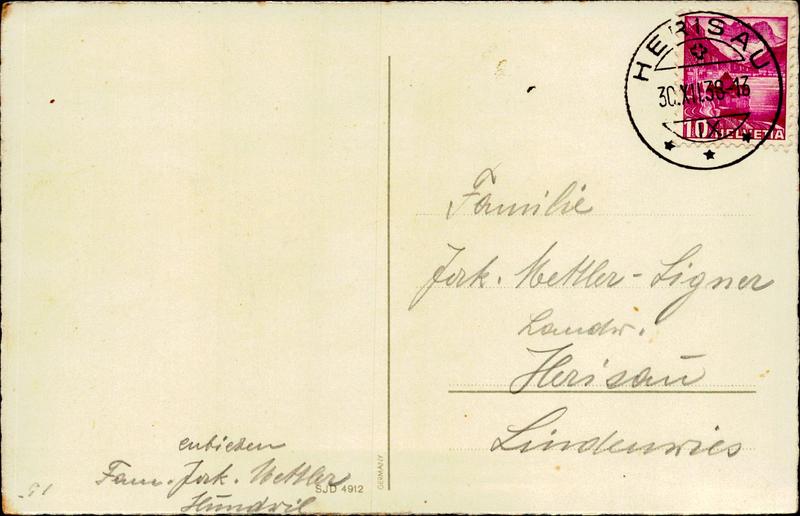 HERISAU
30.XII.38-13
IX
10 HELVETIA
Familie
Jak. Mettler-Signer
Landw.
Herisau
Lindenwies
entbieten
Fam. Jak. Mettler
Hundwil
SJD 4912
GERMANY